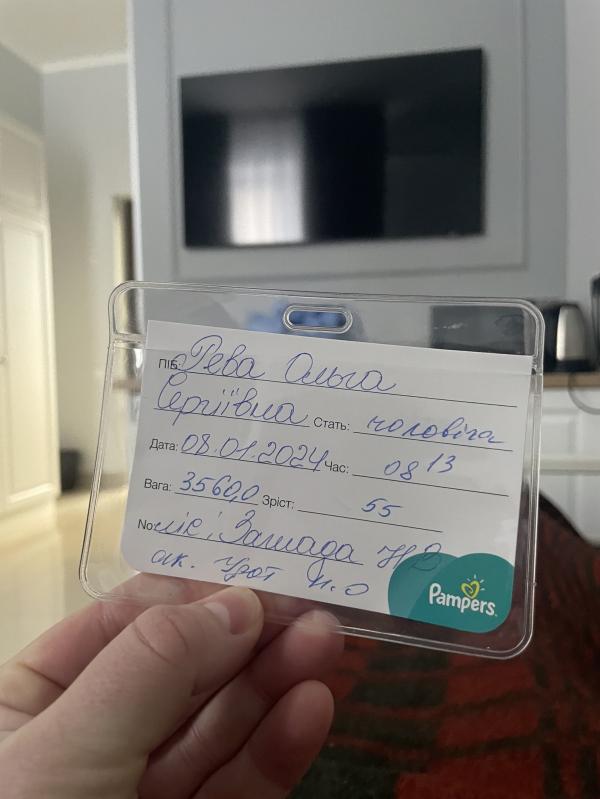 ПІБ: Рева Ольга
Сергіївна Стать: чоловіча
Дата: 08.01.2024 Час: 08 13
Вага: 3560,0 Зріст: 55
No: лік. Зашада Н В
ак. Н.О
Pampers